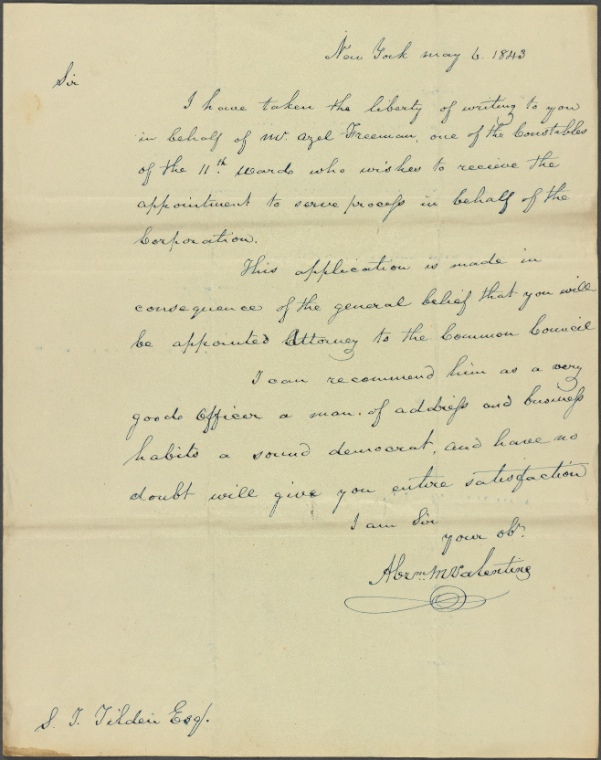 New York may 6. 1843
Sir
I have taken the liberty of writing to you
in behalf of Mr. Azel Freeman, one of the Constables
of the 11th. Ward who wishes to recieve the
appointment to serve process in behalf of the
Corporation.
This application is made in
consequence of the general belief that you will
be appointed Attorney to the Common Council
I can recommend him as a very
good Officer a man. of address and business
habits a sound democrat, and have no
doubt will give you entire satisfaction
I am Sir
your obt.
Abrm. M Valentine
S. J. Tilden Esq.